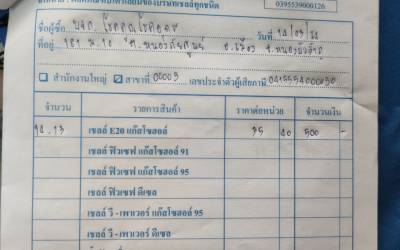 0395539000126
ชื่อผู้ซื้อ บจก. โชคคูณโชคอุดร วันที่ 14/09/20
ที่อยู่ 181 ม.10 ต.หนองภัยศูนย์ อ.เมือง จ.หนองบัวลำภู
สำนักงานใหญ่ ☑ สาขาที่ 00003 เลขประจำตัวผู้เสียภาษี 0415554000030
จำนวน รายการสินค้า ราคาต่อหน่วย จำนวนเงิน
14.13 เชลล์ E20 แก๊สโซฮอล์ 35 40 500 -
เชลล์ ฟิวเซฟ แก๊สโซฮอล์ 91
เชลล์ ฟิวเซฟ แก๊สโซฮอล์ 95
เชลล์ ฟิวเซฟ ดีเซล
เชลล์ วี - เพาเวอร์ แก๊สโซฮอล์ 95
เชลล์ วี - เพาเวอร์ ดีเซล